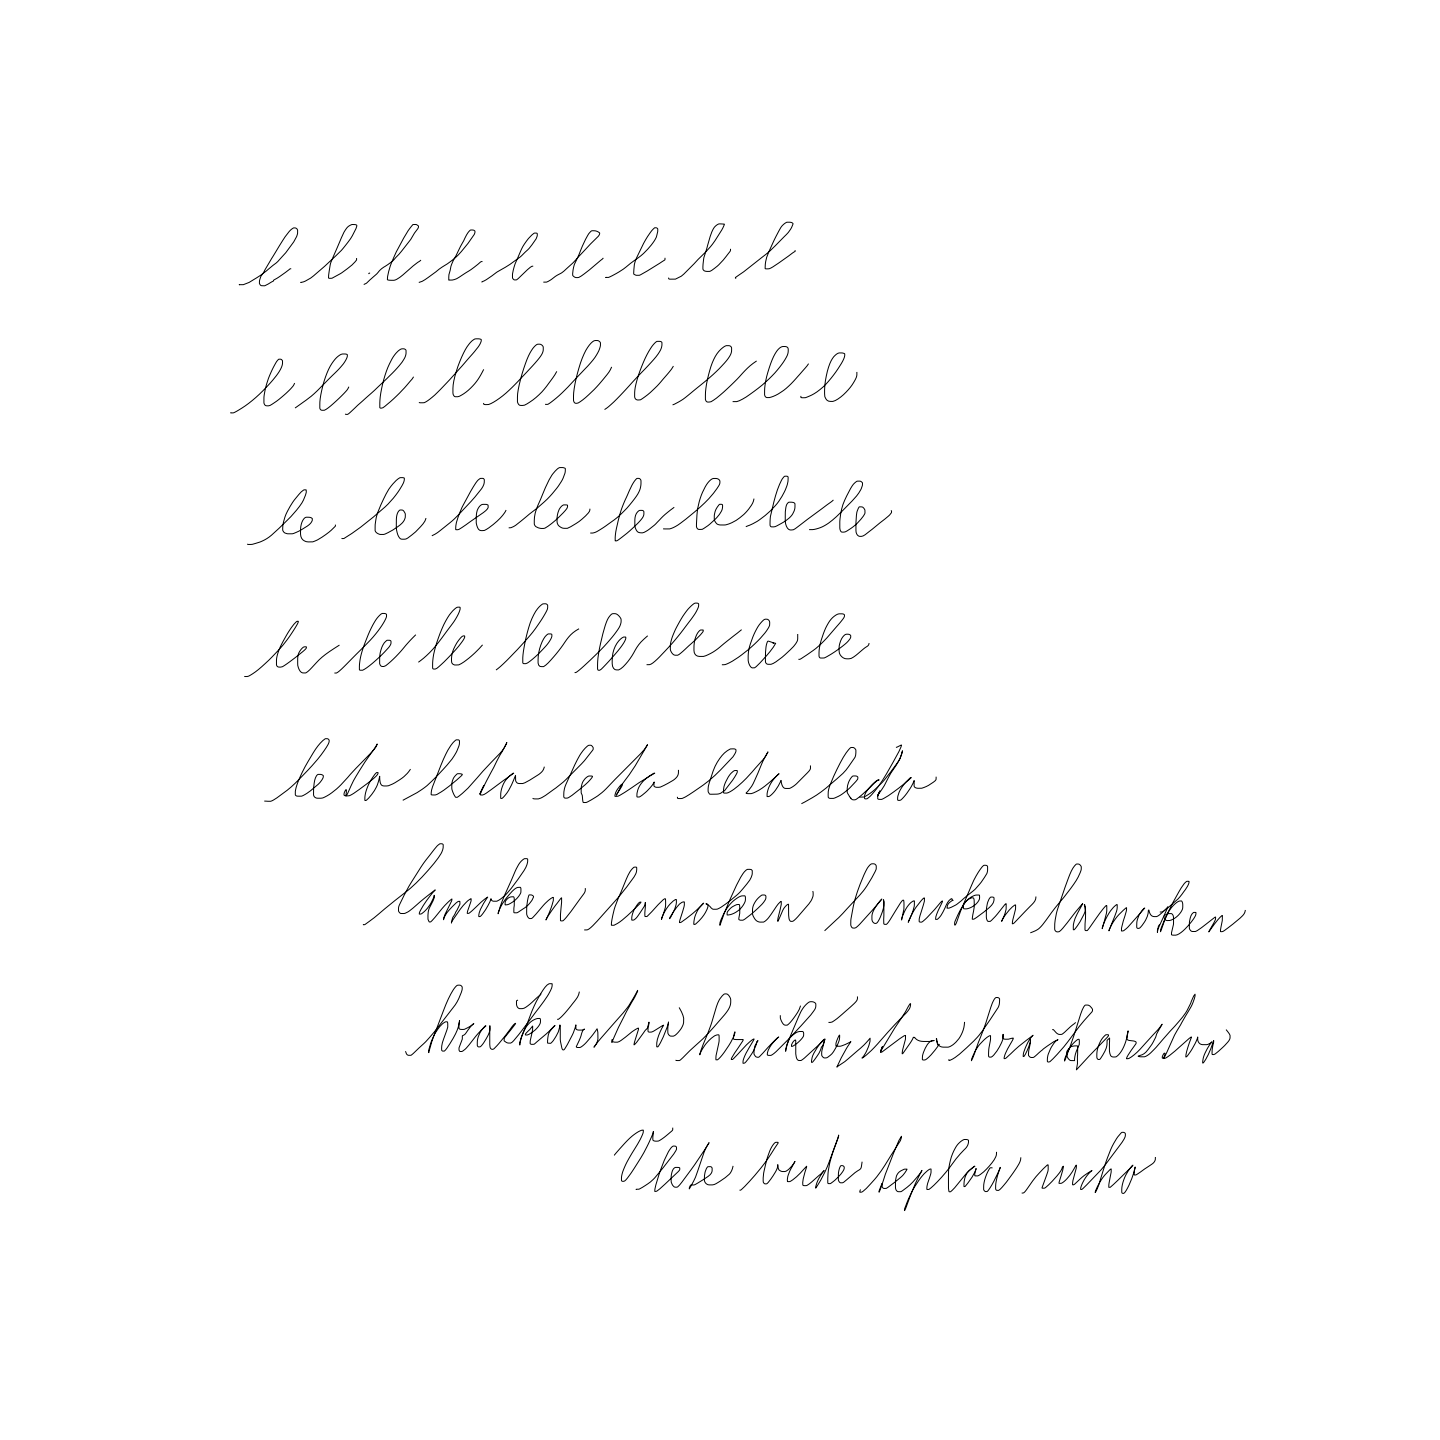 l l l l l l l l l
l l l l l l l l l l
le le le le le le le le
le le le le le le le le
leto leto leto leto ledo
lamoken lamoken lamoken lamoken
hračkárstvo hračkárstvo hračkarstvo
V lete bude teplo a sucho